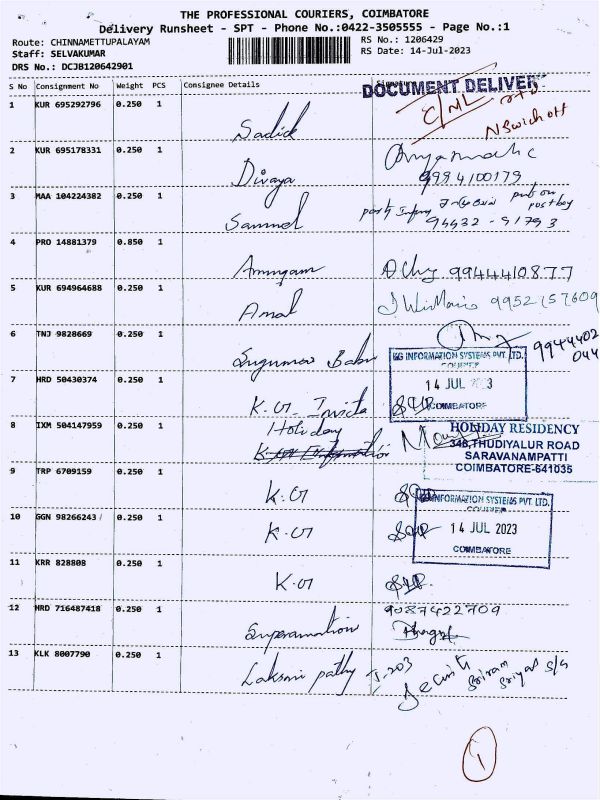 THE PROFESSIONAL COURIERS, COIMBATORE
Delivery Runsheet - SPT - Phone No.:0422-3505555 - Page No.:1
Route: CHINNAMETTUPALAYAM
RS No.: 1206429
Staff: SELVAKUMAR
RS Date: 14-Jul-2023
DRS No.: DCJB120642901
S No Consignment No Weight PCS Consignee Details Signature
DOCUMENT DELIVER
1 KUR 695292796 0.250 1 Sadick
2 KUR 695178331 0.250 1 Divaya
9984100179
3 MAA 104224382 0.250 1 Sammel
94432-91793
4 PRO 14881379 0.850 1 9944410877
5 KUR 694964688 0.250 1 Amal 9952157609
6 TNJ 9828669 0.250 1 Sugumar Babu
9944402
044
KG INFORMATION SYSTEMS PVT. LTD.
COURIER
14 JUL 2023
COIMBATORE
7 HRD 50430374 0.250 1 K.G Invicta
8 IXM 504147959 0.250 1 Holiday
HOLIDAY RESIDENCY
348,THUDIYALUR ROAD
SARAVANAMPATTI
COIMBATORE-641035
9 TRP 6709159 0.250 1 K.G
INFORMATION SYSTEMS PVT. LTD.
COURIER
14 JUL 2023
COIMBATORE
10 GGN 98266243 0.250 1 K.G
11 KRR 828808 0.250 1 K.G
12 HRD 716487418 0.250 1
9087422709
13 KLK 8007790 0.250 1 Laksmi pathy J-203
1